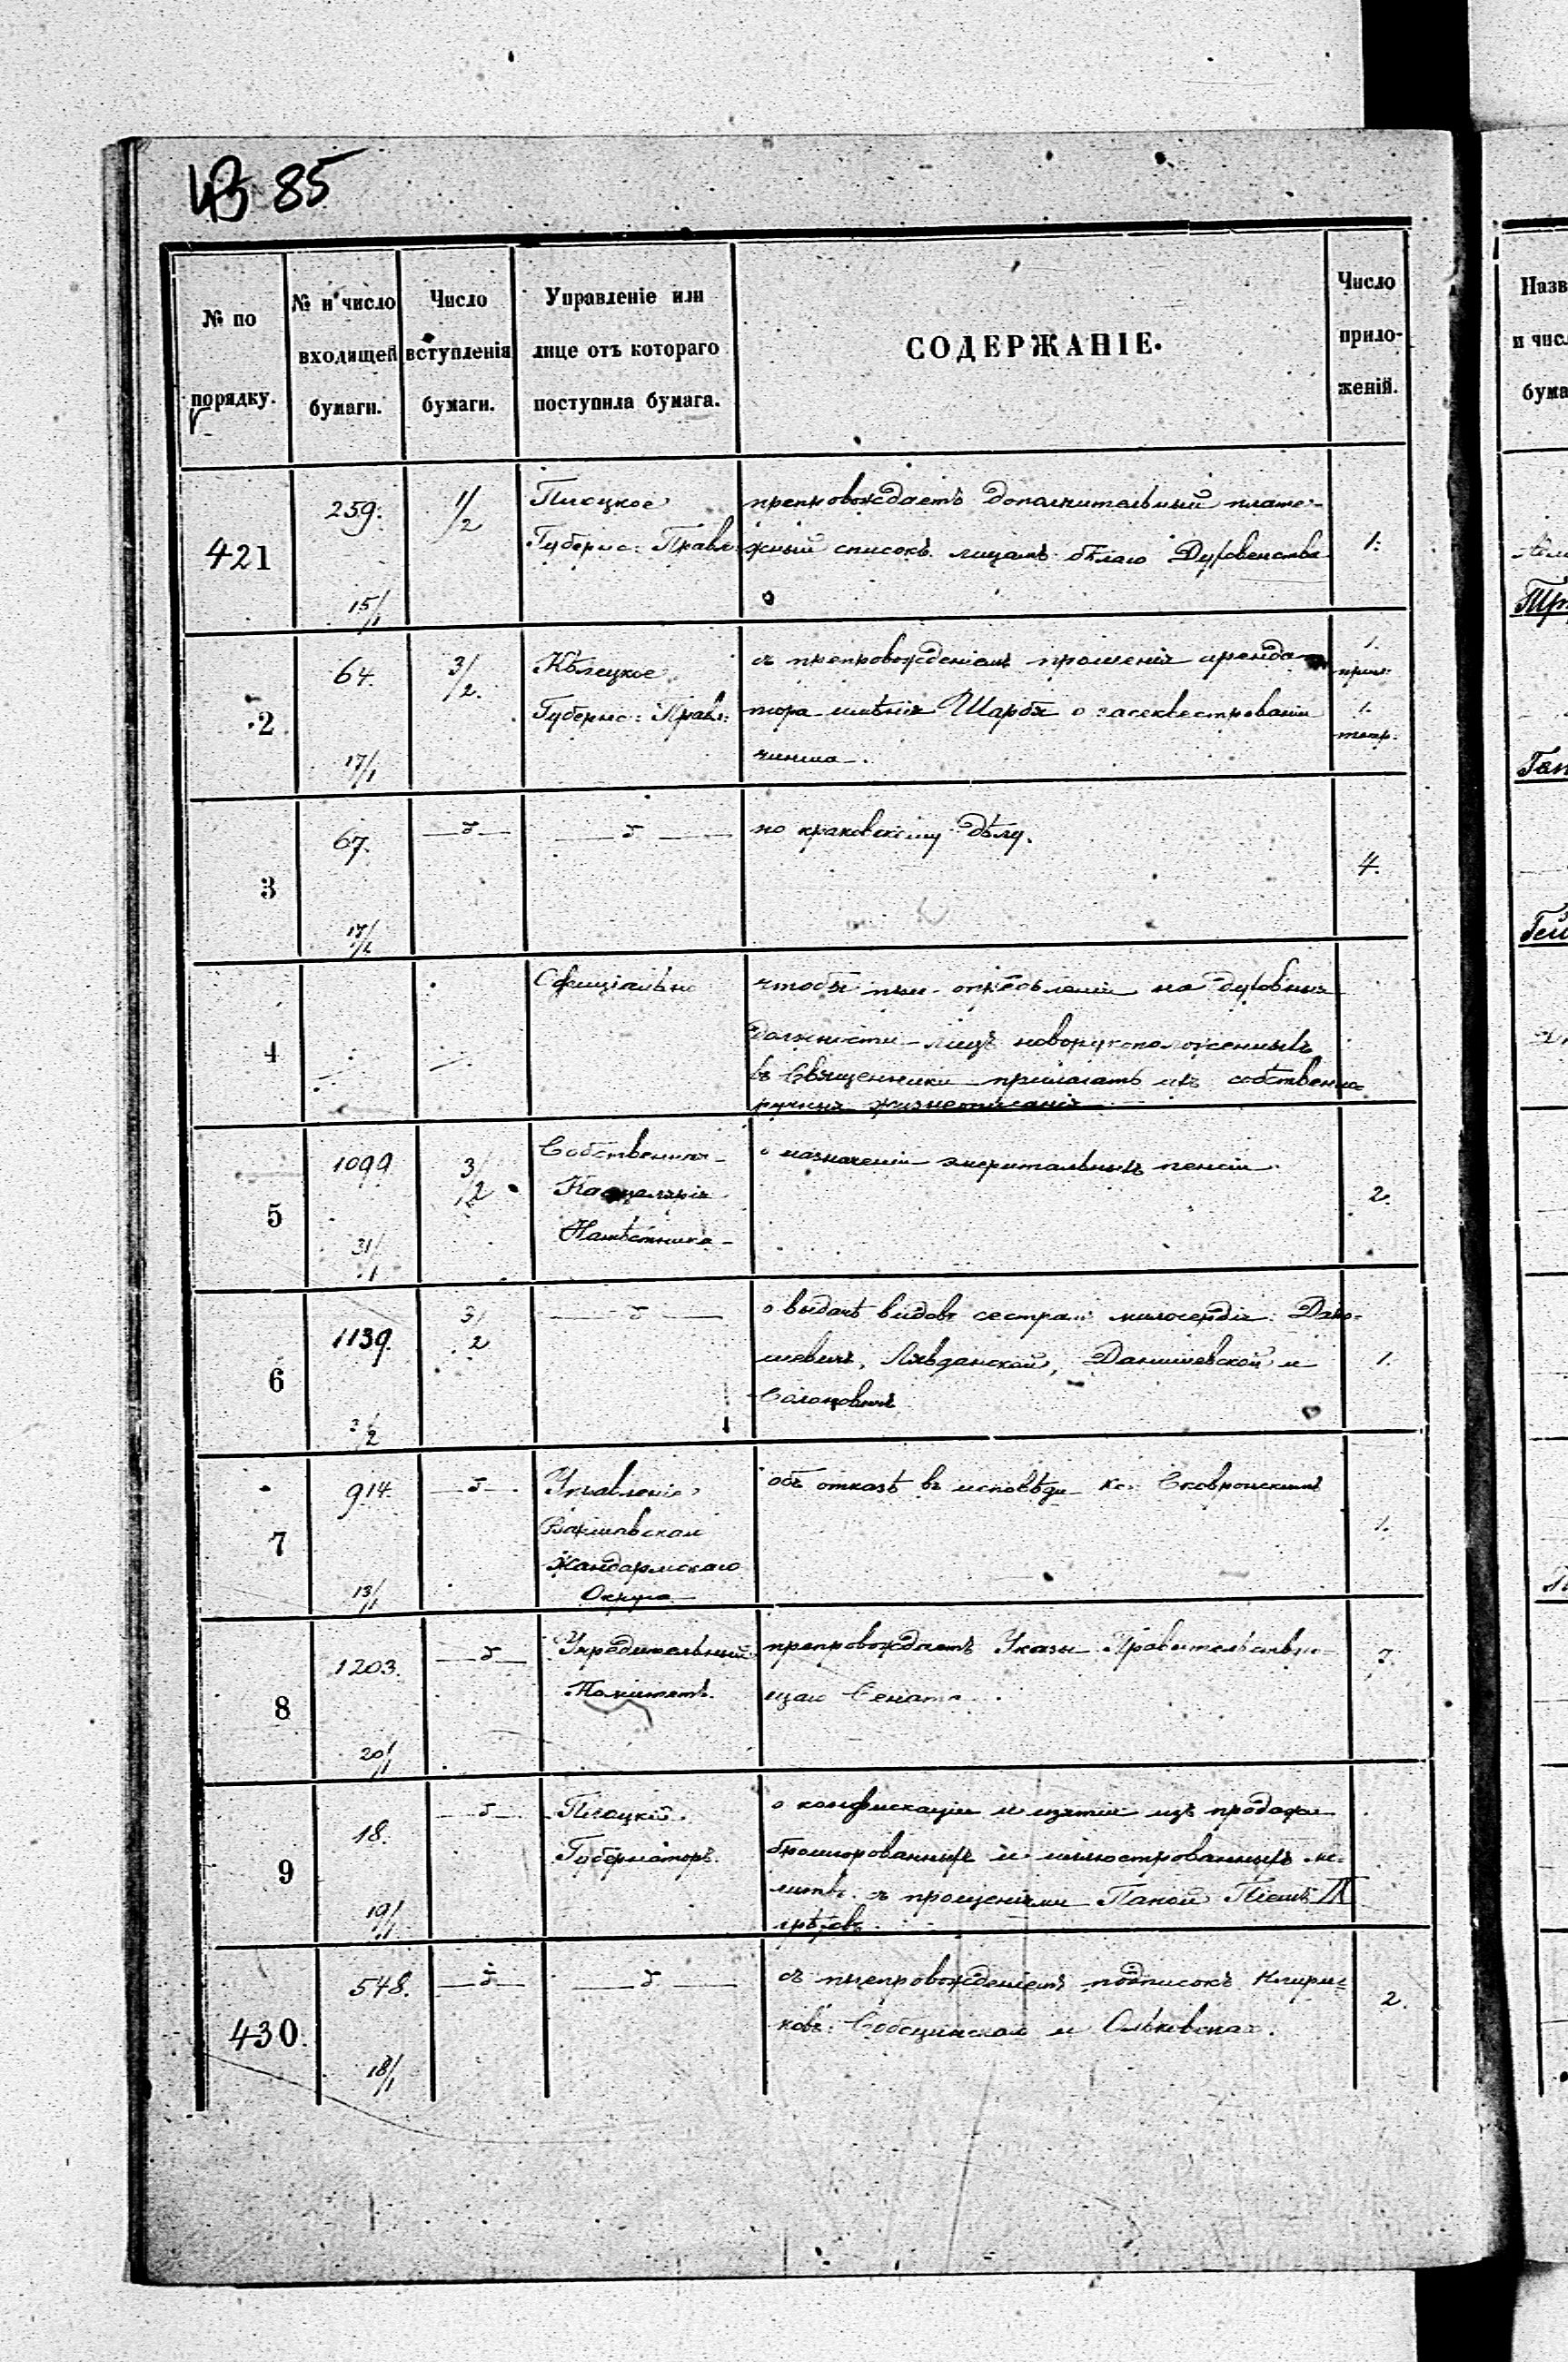 85
№ по порядку.
№ и число входящей бумаги.
Число вступленія бумаги.
Управленіе или лице отъ котораго поступила бумага.
СОДЕРЖАНІЕ.
Число прило-
женій.
421
259.
15/1
1/2
Плоцкое
Губернс: Правл:
препровождаетъ дополнительный плате-
жный списокъ лицамъ бѣлаго Духовенства
1.
2
64.
17/1
3/2.
Кѣлецкое
Губернс: Правл:
съ препровожденіемъ прошенія аренда-
тора имѣнія Шарбя о засеквестрованіи
чинша.
1.
прил:
1.
3
67.
17/1
по краковскому дѣлу.
4.
4
Офиціально
чтобы при опредѣленіи на духовныя
должности лицъ новорукоположенныхъ
въ Священники прилагать ихъ собственно-
ручныя жизнеописанія
5
1099
31/1
3/2
Собственная
Канцелярія
Намѣстника
о назначеніи эмеритальныхъ пенсіи.
2.
6
1139.
3/2
3/2
о выдачѣ видовъ сестрамъ милосердія:
Данишевской и
1.
7
914.
13/1
Управленіе
Варшавскаго
Жандармскаго
Округа
объ отказѣ въ исповѣди Кс: Сковронскимъ
1.
8
1203.
20/1
Учредительный
Комитетъ.
препровождаетъ Указы Правительствую-
щаго Сената.
7.
9
18.
19/1
Плоцкій
Губернаторъ.
о конфискаціи и изятіи изъ продажи
брошюрованныхъ и иллюстрованныхъ мо-
литвъ съ прощеніями Папой Піемъ IX
грѣховъ
430.
548.
18/1
съ препровожденіемъ подписокъ Клири-
ковъ: Собоцинскаго и Ольковскаго.
2.
Назв
и чис
бума